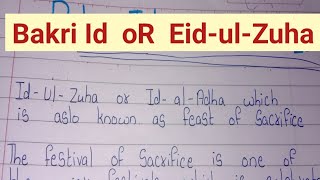 Bakri Id oR Eid-ul-Zuha
Id-Ul-Zuha or Id-al-Adha which
is aslo known as feast of Sacrifice
The festival of Sacrifice is one of